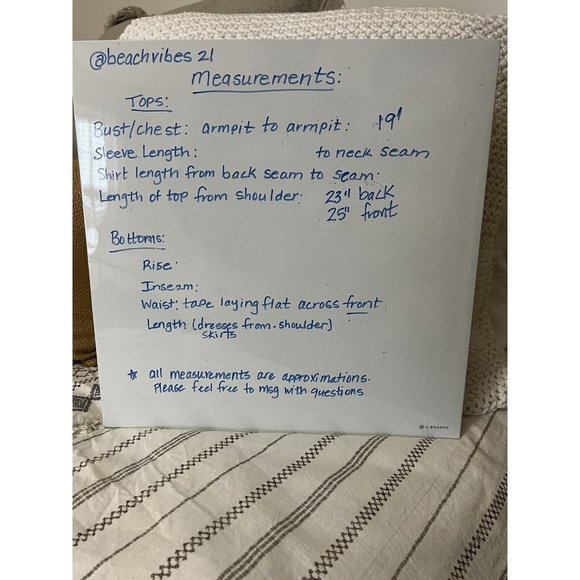 @beachvibes 21
Measurements:
Tops:
Bust/chest: armpit to armpit: 19"
Sleeve Length: to neck seam
Shirt length from back seam to seam:
Length of top from shoulder: 23" back
25" front
Bottoms:
Rise:
Inseam:
Waist: tape laying flat across front
Length (dreeses from shoulder)
skirts
* all measurements are approximations.
Please feel free to msg with questions
U BRANDS